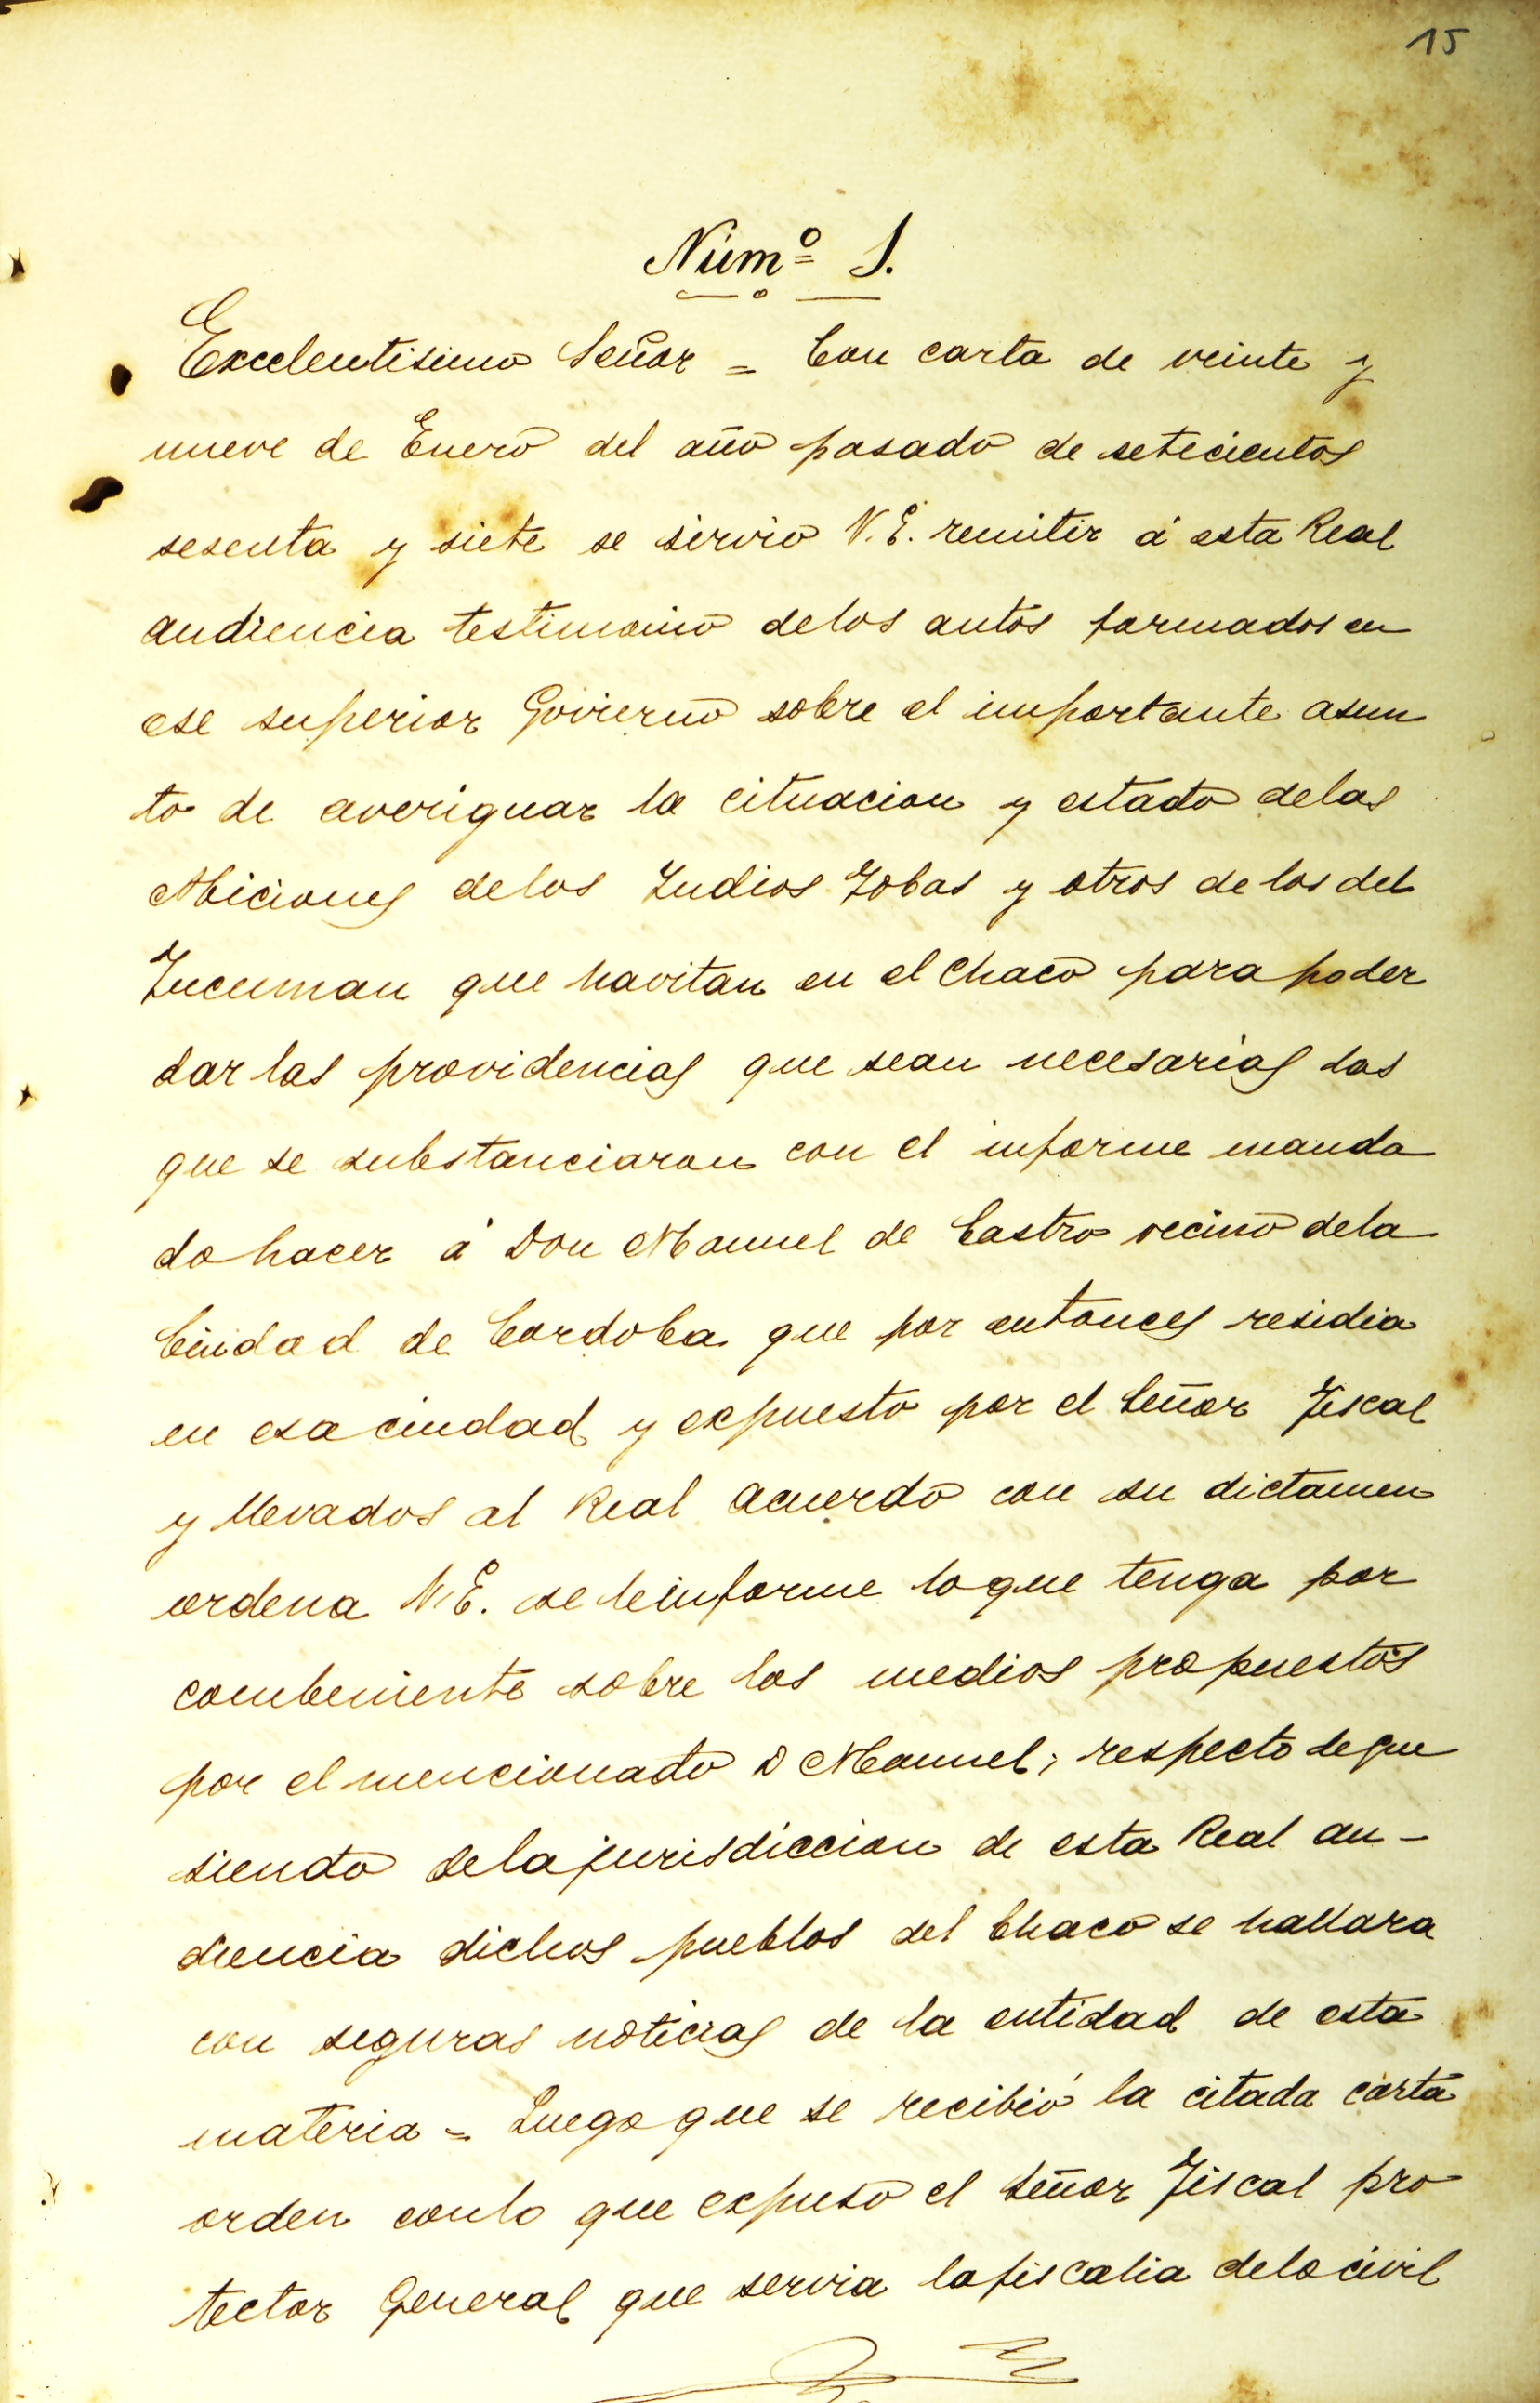 15
Núm.º 1.
Excelentisimo Señor = Con carta de veinte y
nueve de Enero del año pasado de setecientos
sesenta y siete se sirvio V. E. remitir á esta Real
audiencia testimonio delos autos formados en
ese superior Govierno sobre el importante asun
to de averiguar la cituacion y estado delas
Miciones delos Indios Tobas y otros de los del
Tucuman que havitan en el Chaco para poder
dar las providencias que sean necesarias los
que se substanciaron con el informe manda
do hacer á Don Manuel de Castro vecino dela
Ciudad de Cordoba que por entonces residia
en esa ciudad y expuesto por el Señor Fiscal
y llevados al Real acuerdo con su dictamen
ordena V. E. se leinforme loque tenga por
combeniente sobre los medios propuestos
por el mencionado D Manuel, respecto deque
siendo dela jurisdiccion de esta Real au-
diencia dichos pueblos del Chaco se hallara
con seguras noticias de la entidad de esta
materia = Luego que se recibió la citada carta
orden conlo que expuso el Señor Fiscal pro
tector General que servia lafiscalia delo civil